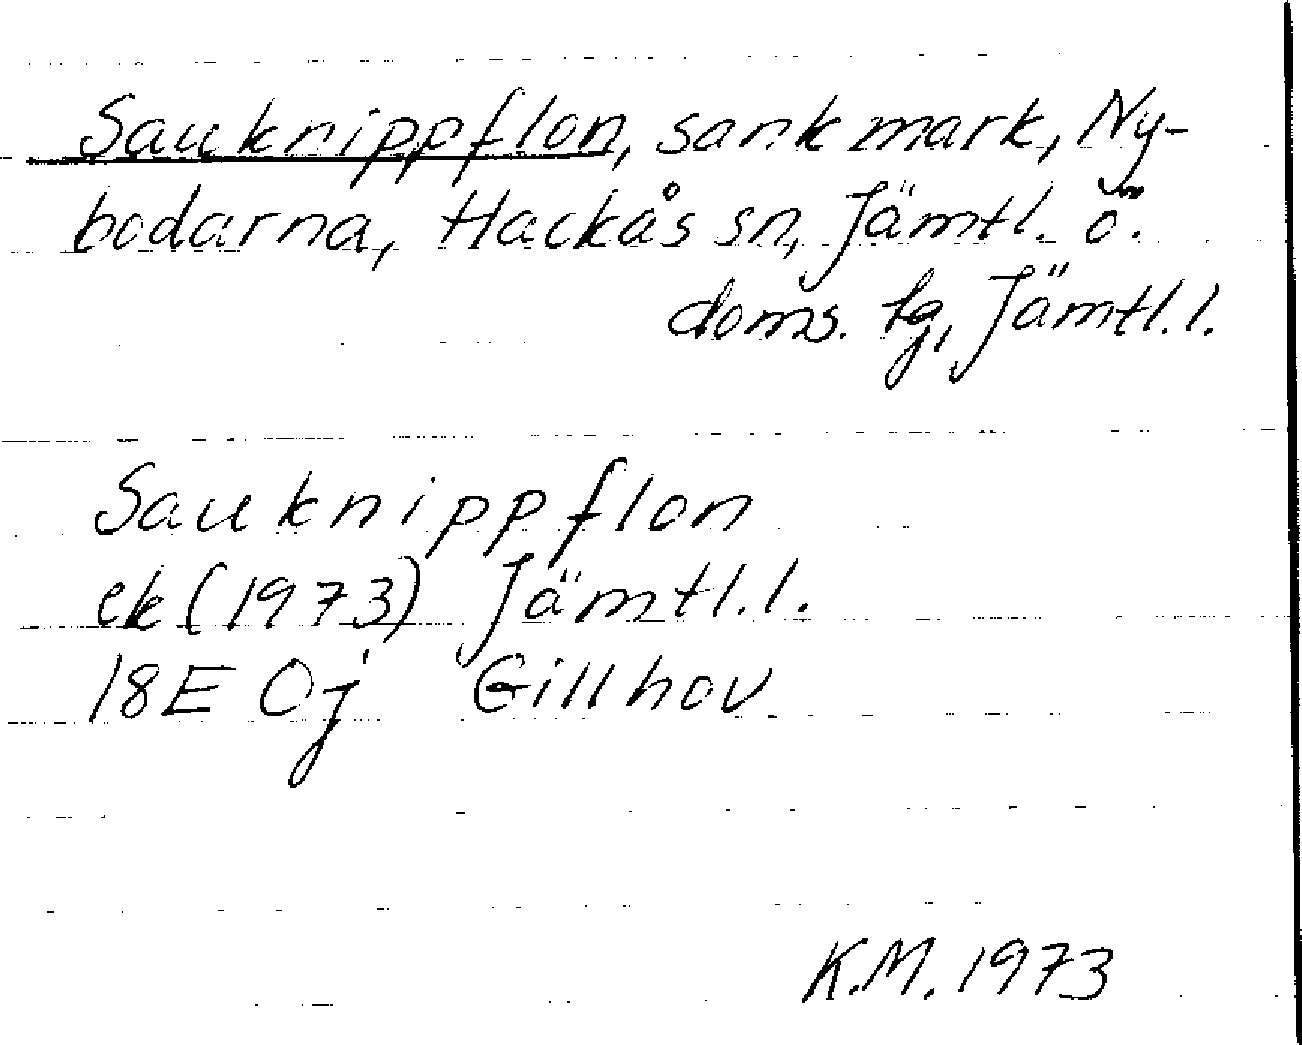 Sauknippflon, sankmark, Ny-
bodarna, Hackås sn, Jämtl. ö.
doms. tg, Jämtl. l.
Sauknippflon
ek (1973) Jämtl. l.
18E 0j Gillhov
K.M. 1973